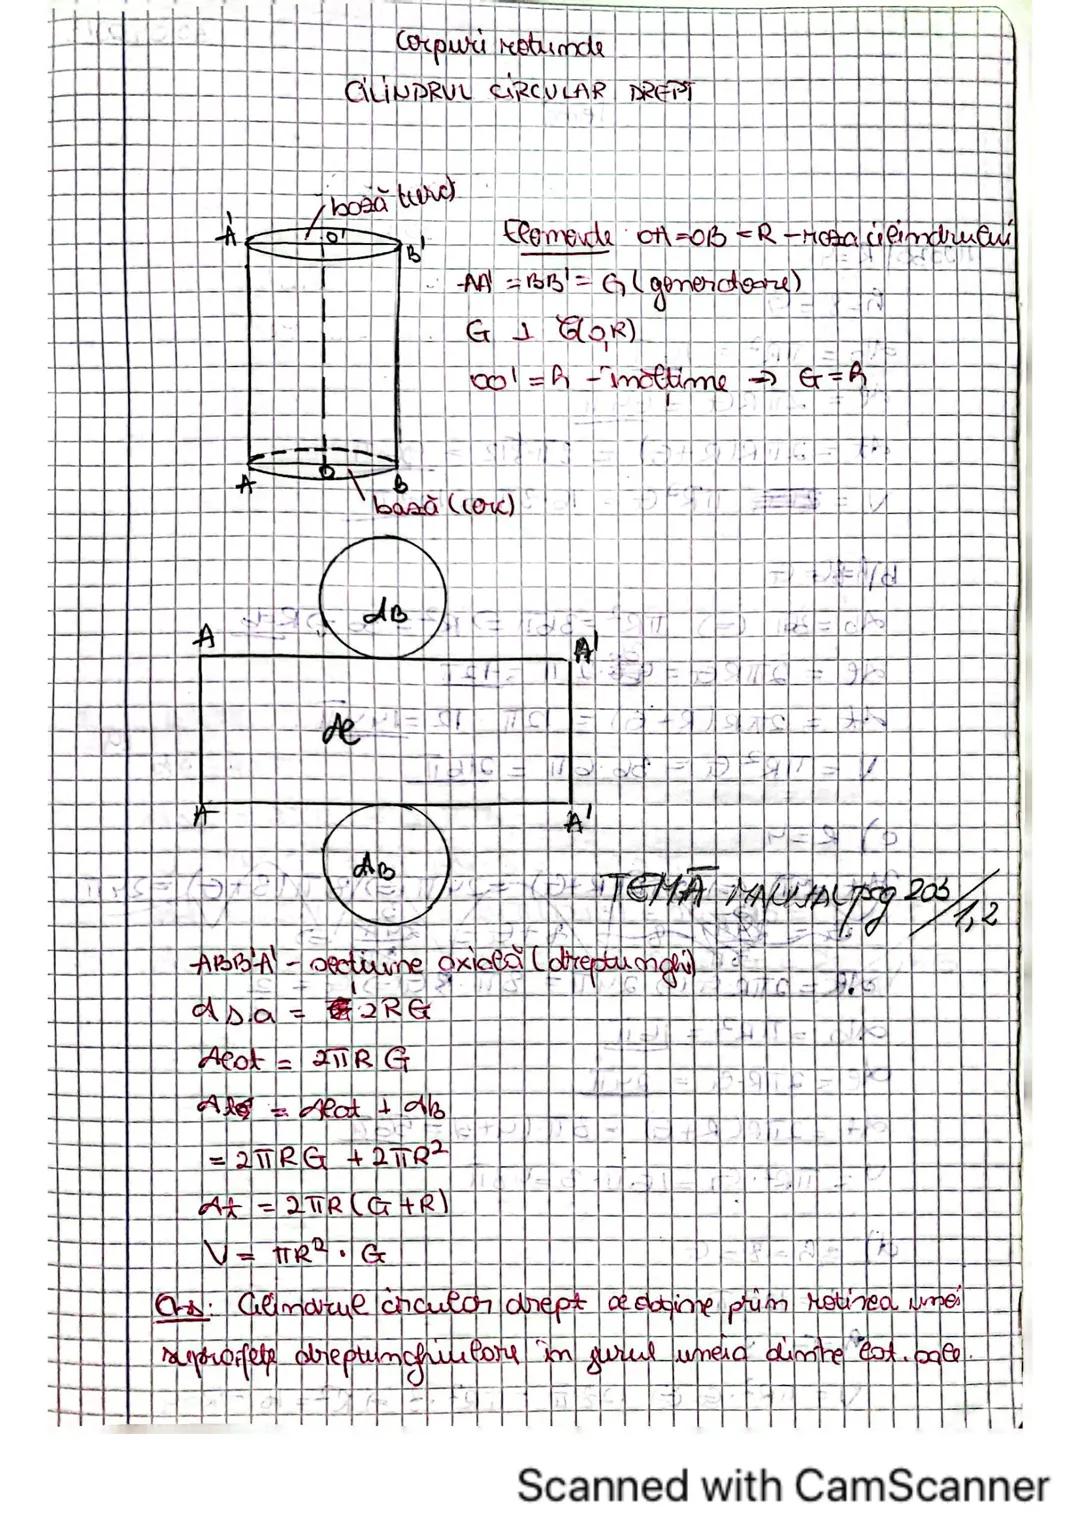 Corpuri rotunde
CILINDRUL CIRCULAR DREPT
bază (cerc)
A'
O'
B'
Elemente OA=OB=R - raza cilindrului
AA' = BB' = G (generatoare)
G ⊥ C(O,R)
OO' = h - înălțime => G = h
A
O
B
bază (cerc)
AB
A
A'
Al
A
A'
AB
TEMĂ MANUAL pag 203/1,2
ABB'A' - secțiune axială (dreptunghi)
A s.a = 2RG
Alat = 2πRG
At = Alat + Ab
= 2πRG + 2πR²
At = 2πR(G+R)
V = πR² · G
Obs: Cilindrul circular drept se obține prin rotirea unei
suprafețe dreptunghiulare în jurul uneia dintre lat. sale.
Scanned with CamScanner